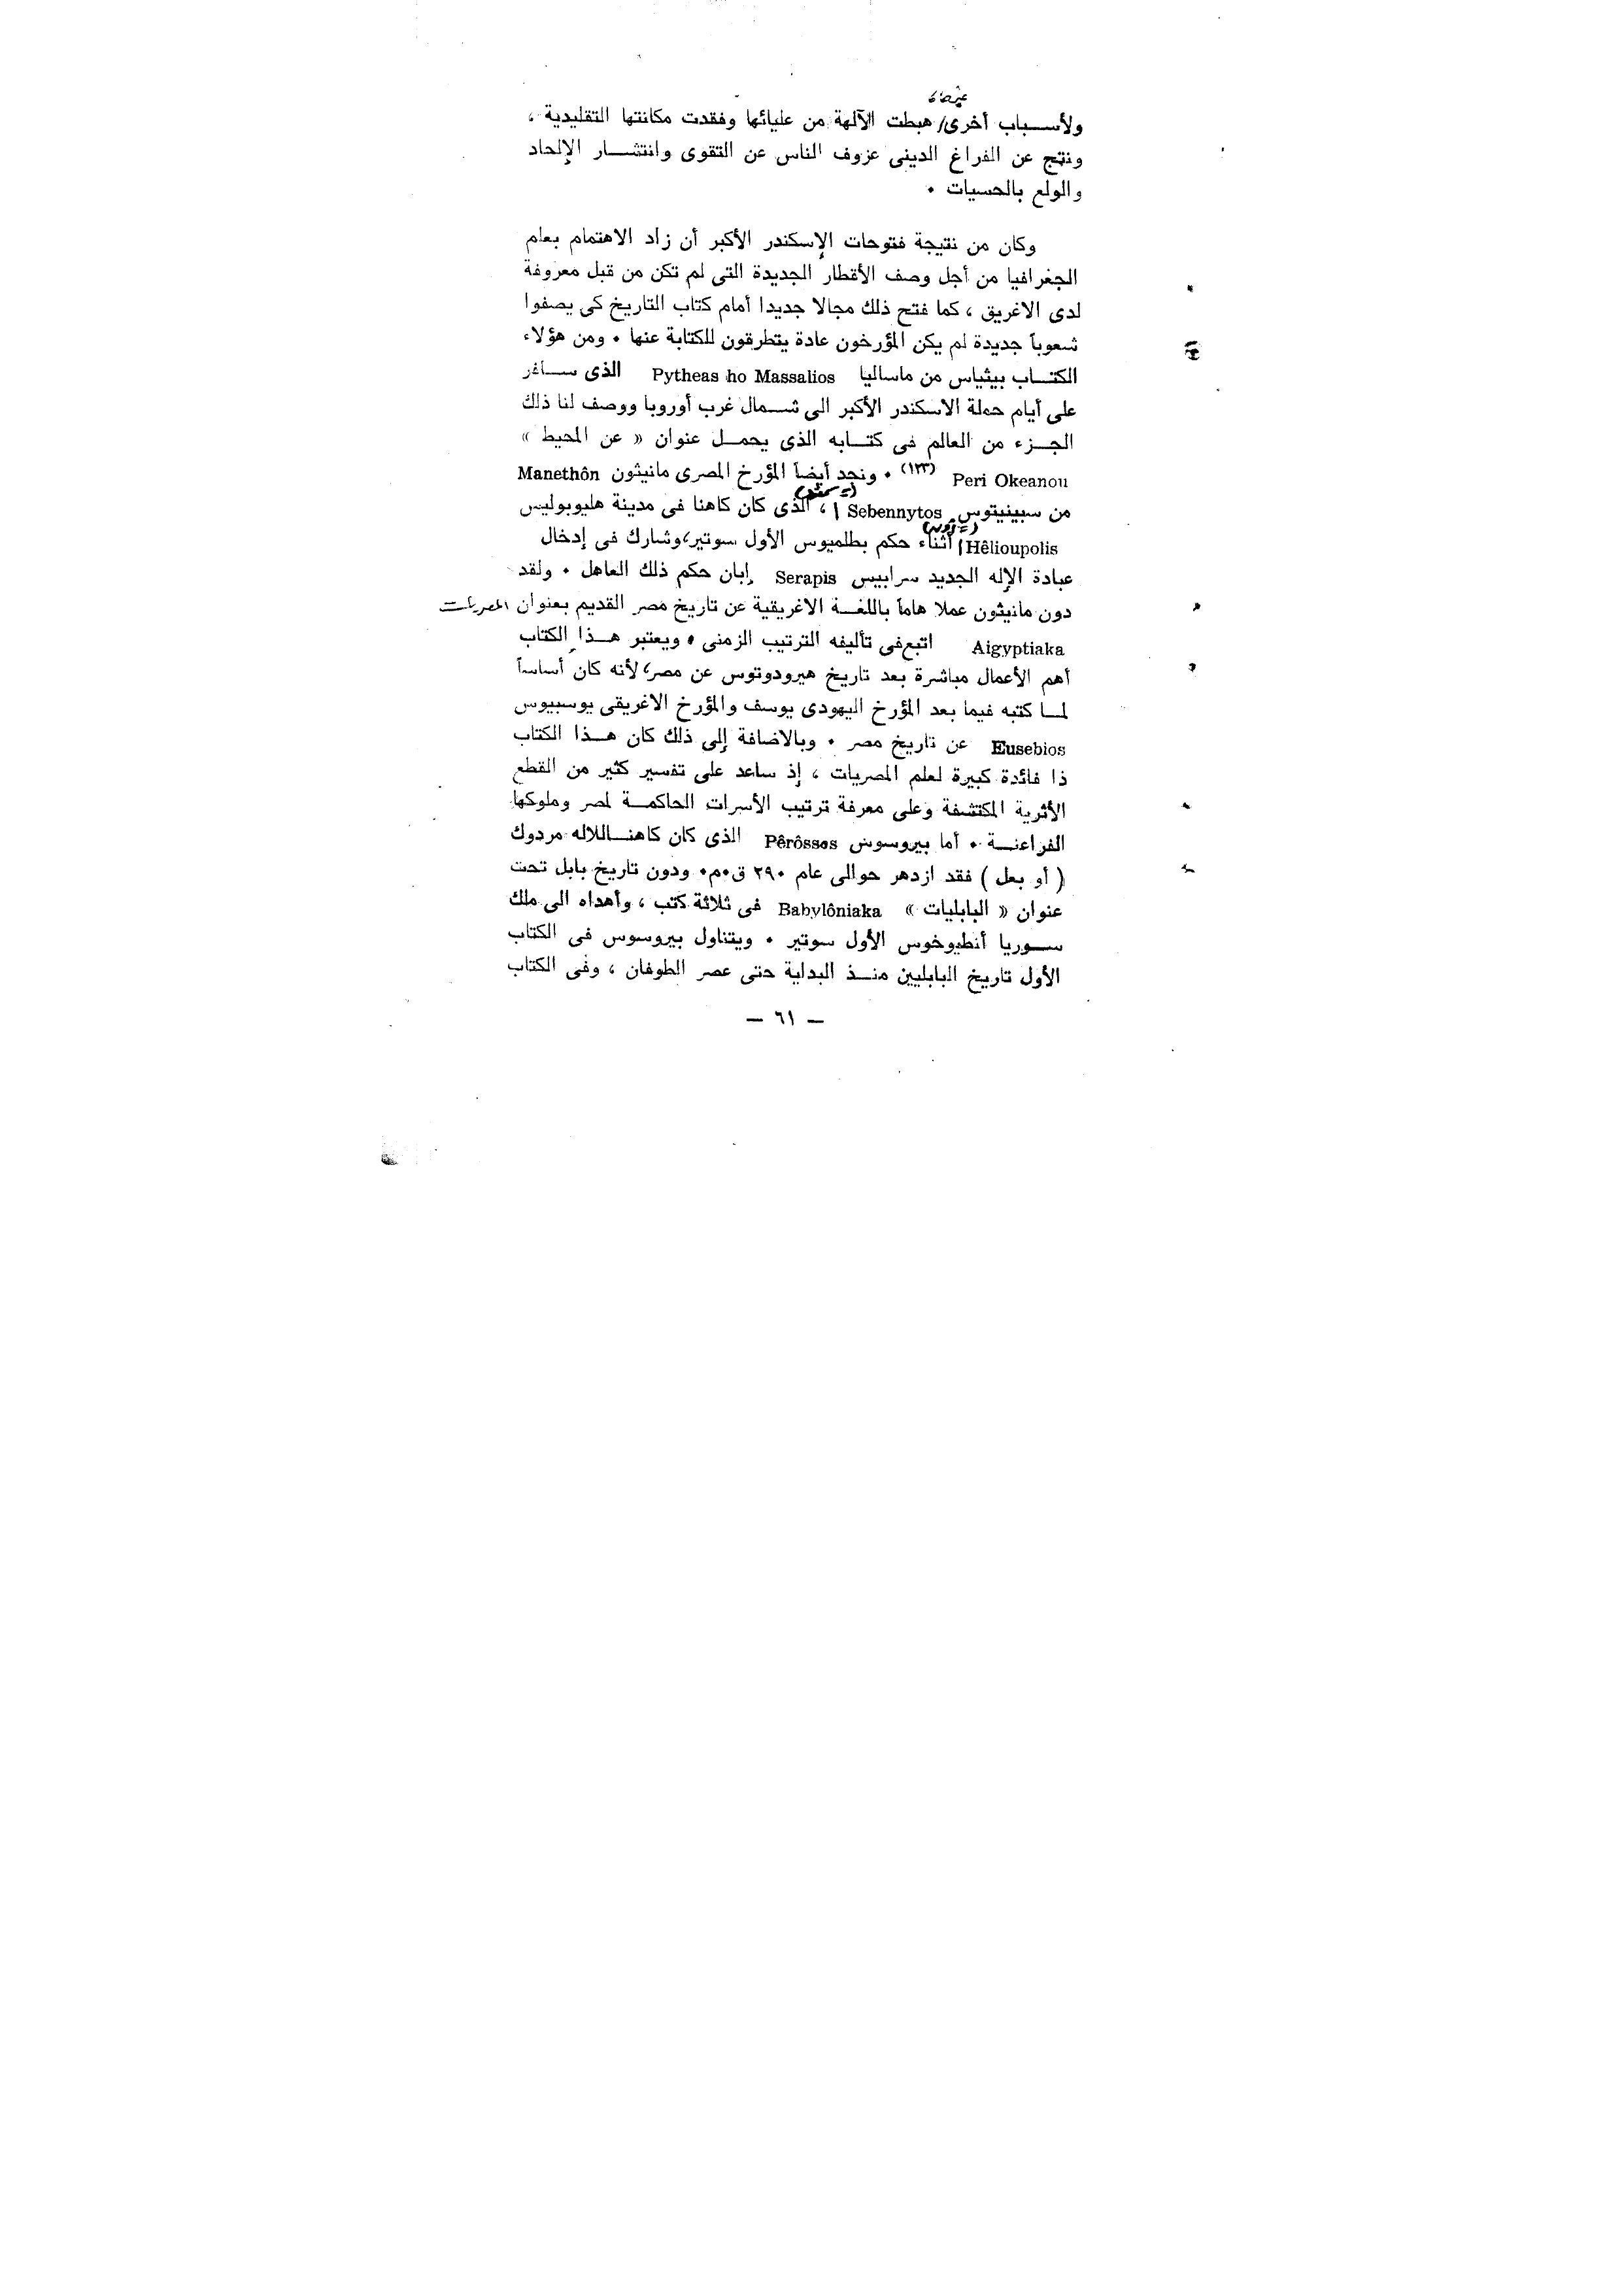 ولأسباب أخرى/ هبطت الآلهة من عليائها وفقدت مكانتها التقليدية ،
ونتج عن الفراغ الدينى عزوف الناس عن التقوى وانتشار الإلحاد
والولع بالحسيات ٠
وكان من نتيجة فتوحات الإسكندر الأكبر أن زاد الاهتمام بعلم
الجغرافيا من أجل وصف الأقطار الجديدة التى لم تكن من قبل معروفة
لدى الاغريق ، كما فتح ذلك مجالا جديدا أمام كتاب التاريخ كى يصفوا
شعوباً جديدة لم يكن المؤرخون عادة يتطرقون للكتابة عنها ٠ ومن هؤلاء
الكتاب بيثياس من ماساليا Pytheas ho Massalios الذى سافر
على أيام حملة الاسكندر الأكبر الى شمال غرب أوروبا ووصف لنا ذلك
الجزء من العالم فى كتابه الذى يحمل عنوان « عن المحيط »
Peri Okeanou (١٣٣) ٠ ونجد أيضاً المؤرخ المصرى مانيثون Manethôn
من سبينيتوس Sebennytos (= سمنود) ، الذى كان كاهنا فى مدينة هليوبوليس
Hêlioupolis (= أون) أثناء حكم بطلميوس الأول سوتير، وشارك فى إدخال
عبادة الإله الجديد سرابيس Serapis إبان حكم ذلك العاهل ٠ ولقد
دون مانيثون عملا هاماً باللغة الاغريقية عن تاريخ مصر القديم بعنوان المصريات
Aigyptiaka اتبع فى تأليفه الترتيب الزمنى ٠ ويعتبر هذا الكتاب
أهم الأعمال مباشرة بعد تاريخ هيرودوتوس عن مصر، لأنه كان أساساً
لما كتبه فيما بعد المؤرخ اليهودى يوسف والمؤرخ الاغريقى يوسبيوس
Eusebios عن تاريخ مصر ٠ وبالاضافة إلى ذلك كان هذا الكتاب
ذا فائدة كبيرة لعلم المصريات ، إذ ساعد على تفسير كثير من القطع
الأثرية المكتشفة وعلى معرفة ترتيب الأسرات الحاكمة لمصر وملوكها
الفراعنة ٠ أما بيروسوس Pêrôssos الذى كان كاهنا للاله مردوك
( أو بعل ) فقد ازدهر حوالى عام ٢٩٠ ق٠م٠ ودون تاريخ بابل تحت
عنوان « البابليات » Babylôniaka فى ثلاثة كتب ، وأهداه الى ملك
سوريا أنطيوخوس الأول سوتير ٠ ويتناول بيروسوس فى الكتاب
الأول تاريخ البابليين منذ البداية حتى عصر الطوفان ، وفى الكتاب
— ٦١ —